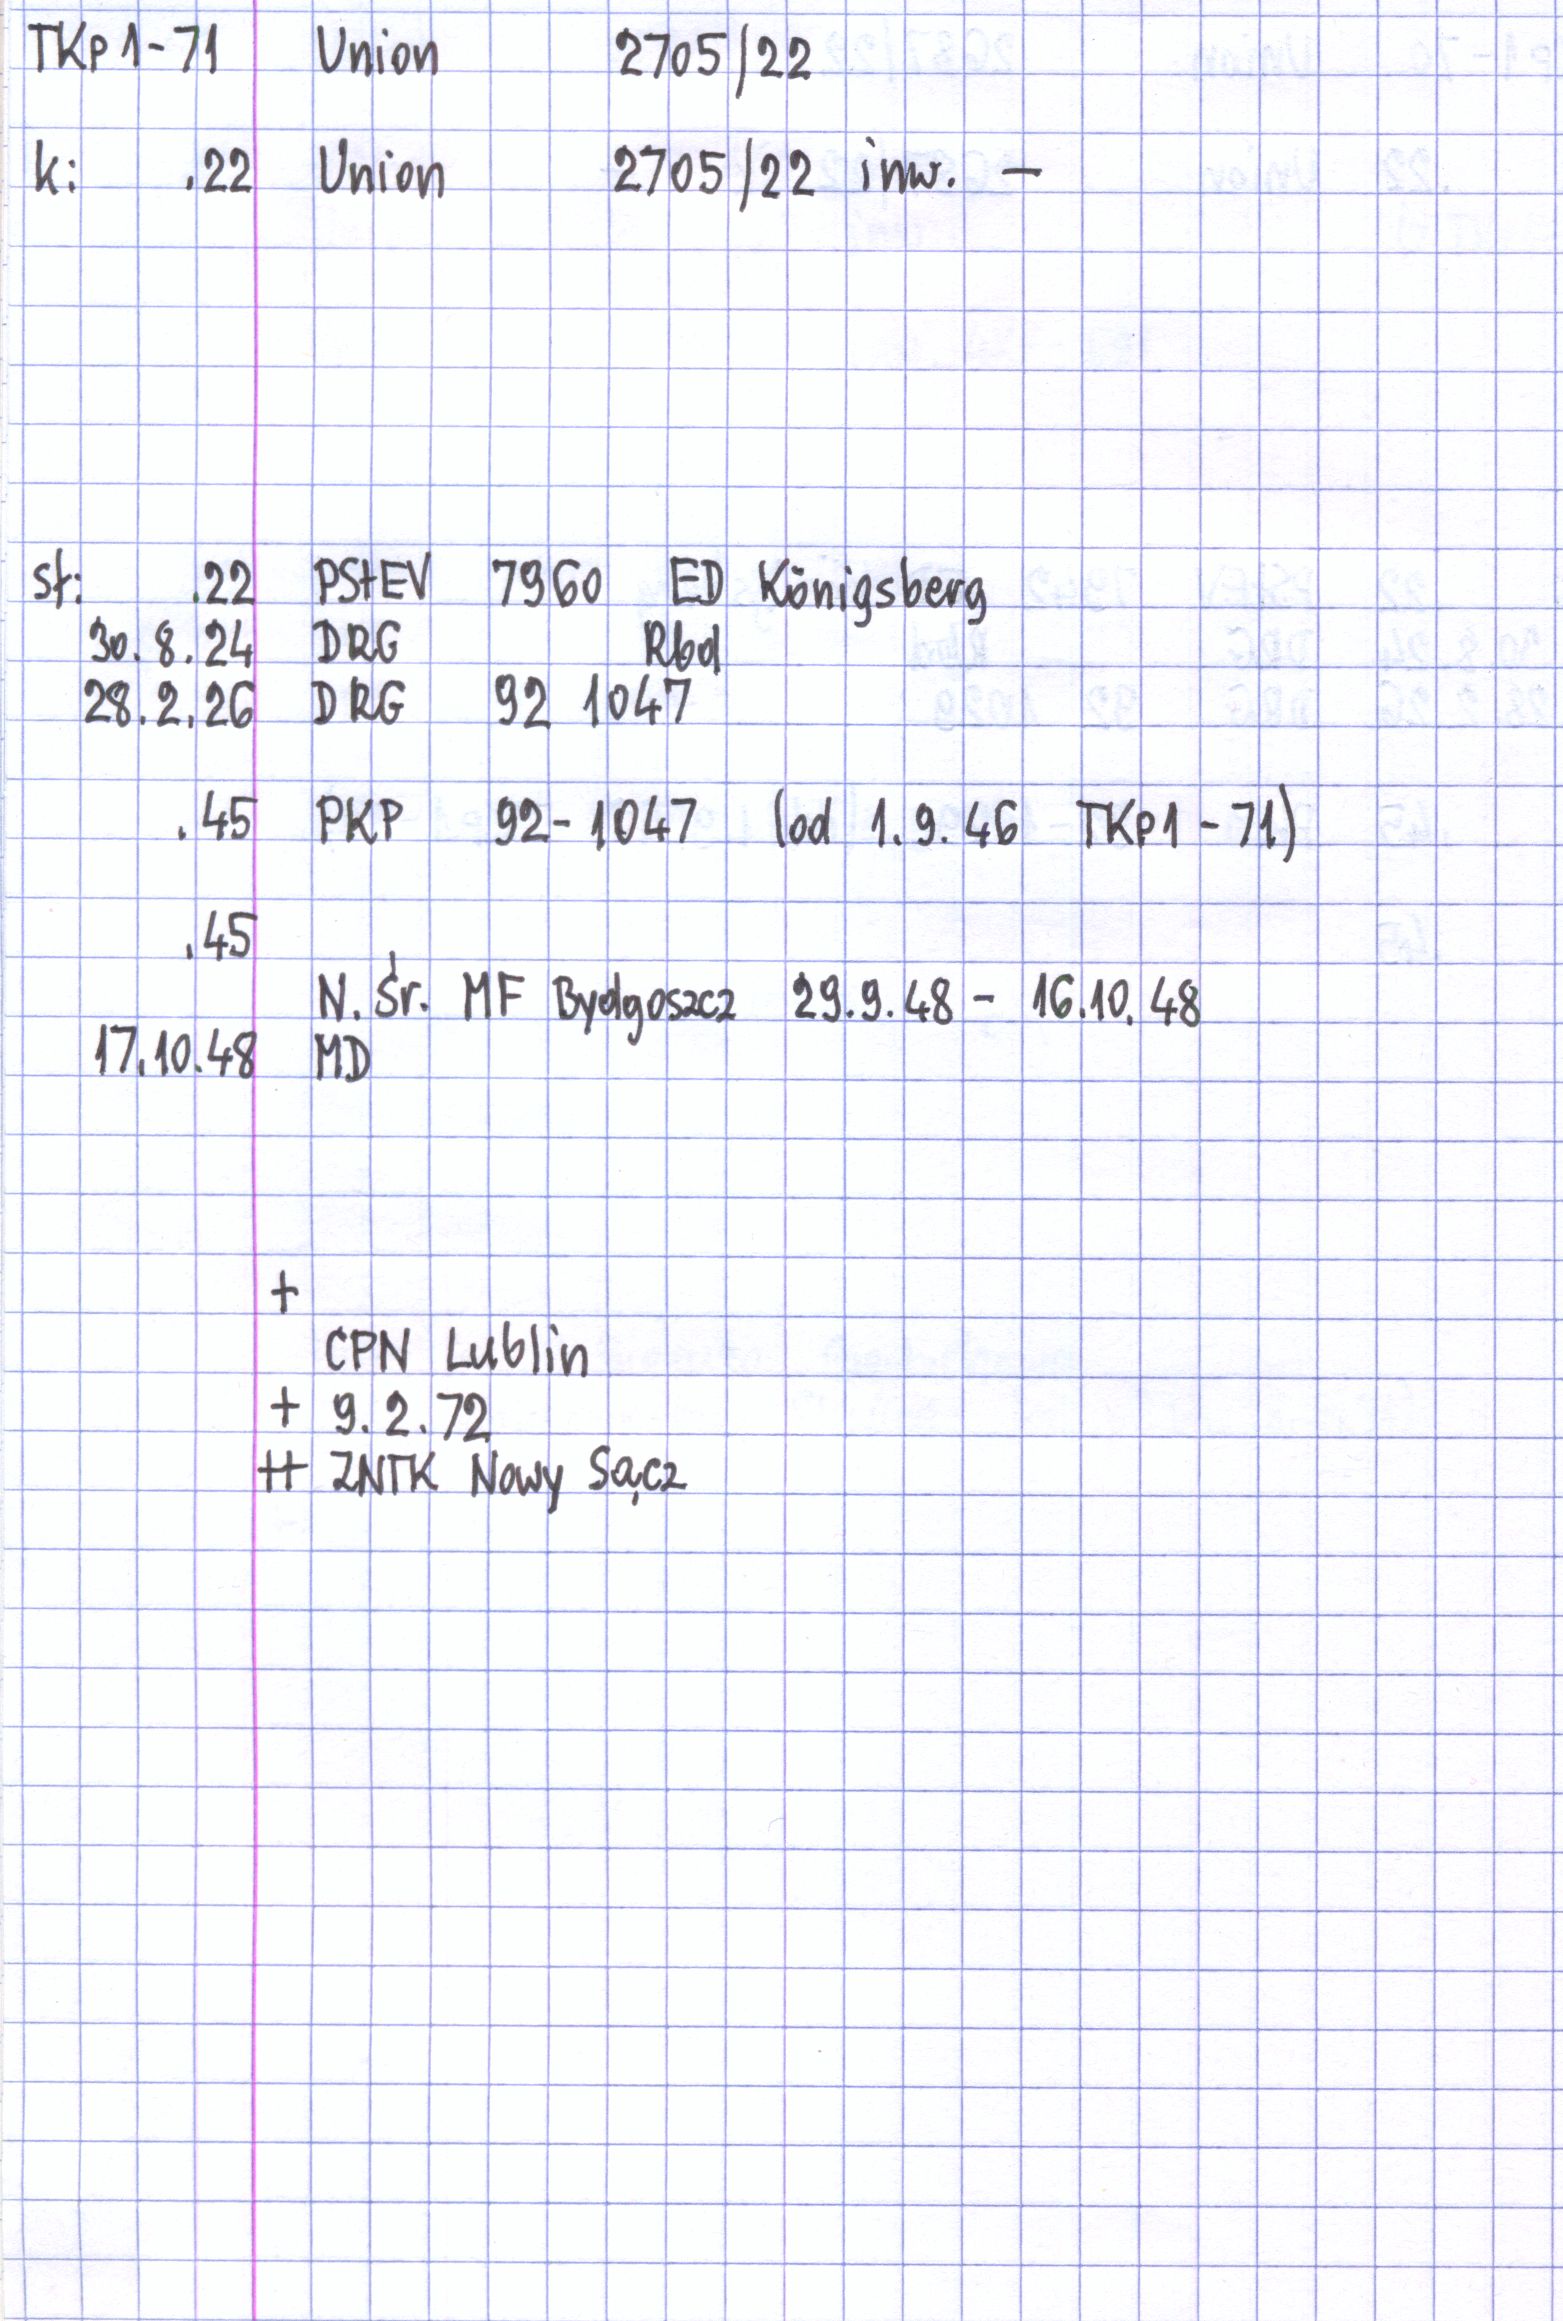 TKp1-71 Union 2705/22
k: .22 Union 2705/22 inw. –
st: .22 PStEV 7960 ED Königsberg
30.8.24 DRG Rbd
28.2.26 DRG 92 1047
.45 PKP 92-1047 (od 1.9.46 TKp1-71)
.45
N. Śr. MF Bydgoszcz 29.9.48 - 16.10.48
17.10.48 MD
+
CPN Lublin
+ 9.2.72
++ ZNTK Nowy Sącz